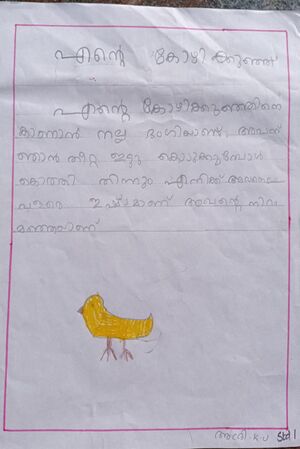 എന്റെ കോഴി ക്കുഞ്ഞ്
എന്റെ കോഴിക്കുഞ്ഞിനെ
കാണാൻ നല്ല ഭംഗിയാണ്. അവന്
ഞാൻ തീറ്റ ഇട്ടു കൊടുക്കുമ്പോൾ
കൊത്തി തിന്നും എനിക്ക് അവനെ
വളരെ ഇഷ്ടമാണ് അവന്റെ നിറം
മഞ്ഞയാണ്
K.V Std 1